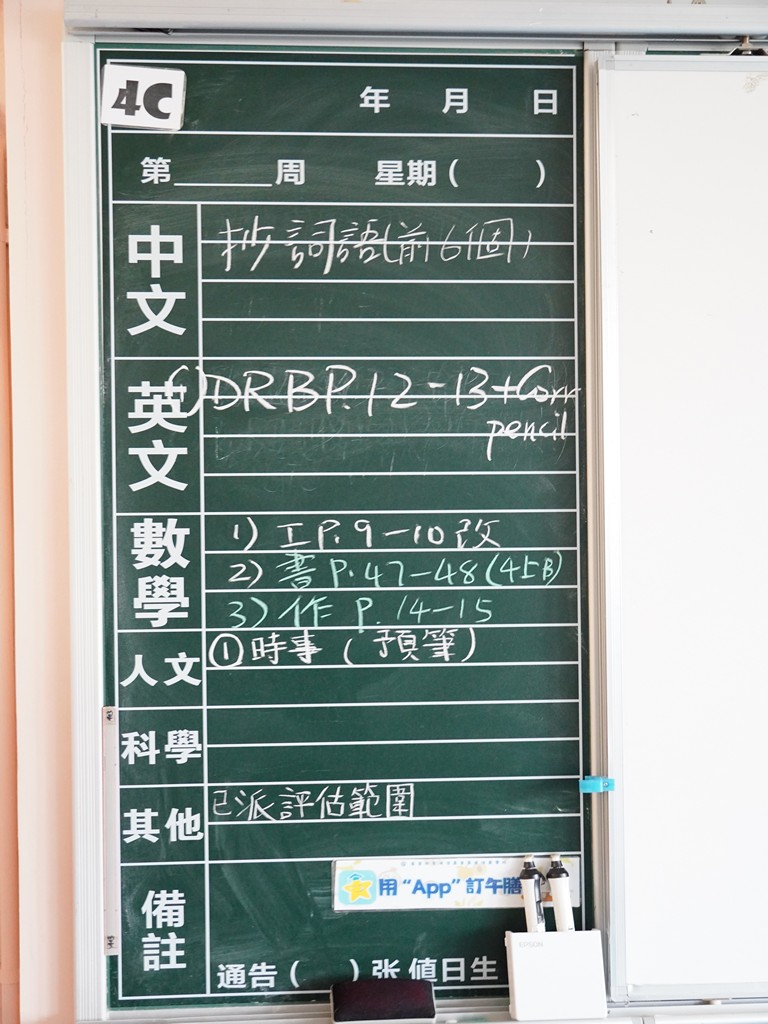 4C
年 月 日
第______周 星期( )
中文
抄詞語(前6個)
英文
()DRBP.12-13+Corr
pencil
數學
1) 工P.9-10改
2) 書P.47-48(45B)
3) 作 P.14-15
人文
①時事(預筆)
科學
其他
已派評估範圍
備註
用“App”訂午膳
EPSON
通告( )张 值日生